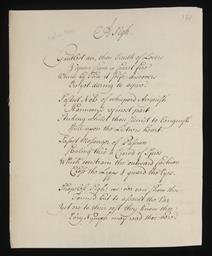 A Sigh
Gentlest air, thou breath of Lovers
Vapour from a secret fire
Which by thee it self discovers
E're yet daring to aspire
Softest Note of whisper'd Anguish
Harmony's refined part
Striking whilst thou seem'st to languish
Full upon the Listners heart
Softest Messenger of Passion
Stealing thro' a Crowd of Spies
Which constrain the outward fashion
Close the Lipps & guard the Eyes
Shapeless Sigh! we ne'er can show thee
Form'd but to assault the Ear
Yet ere to their cost they know thee
Every Nymph may read thee here